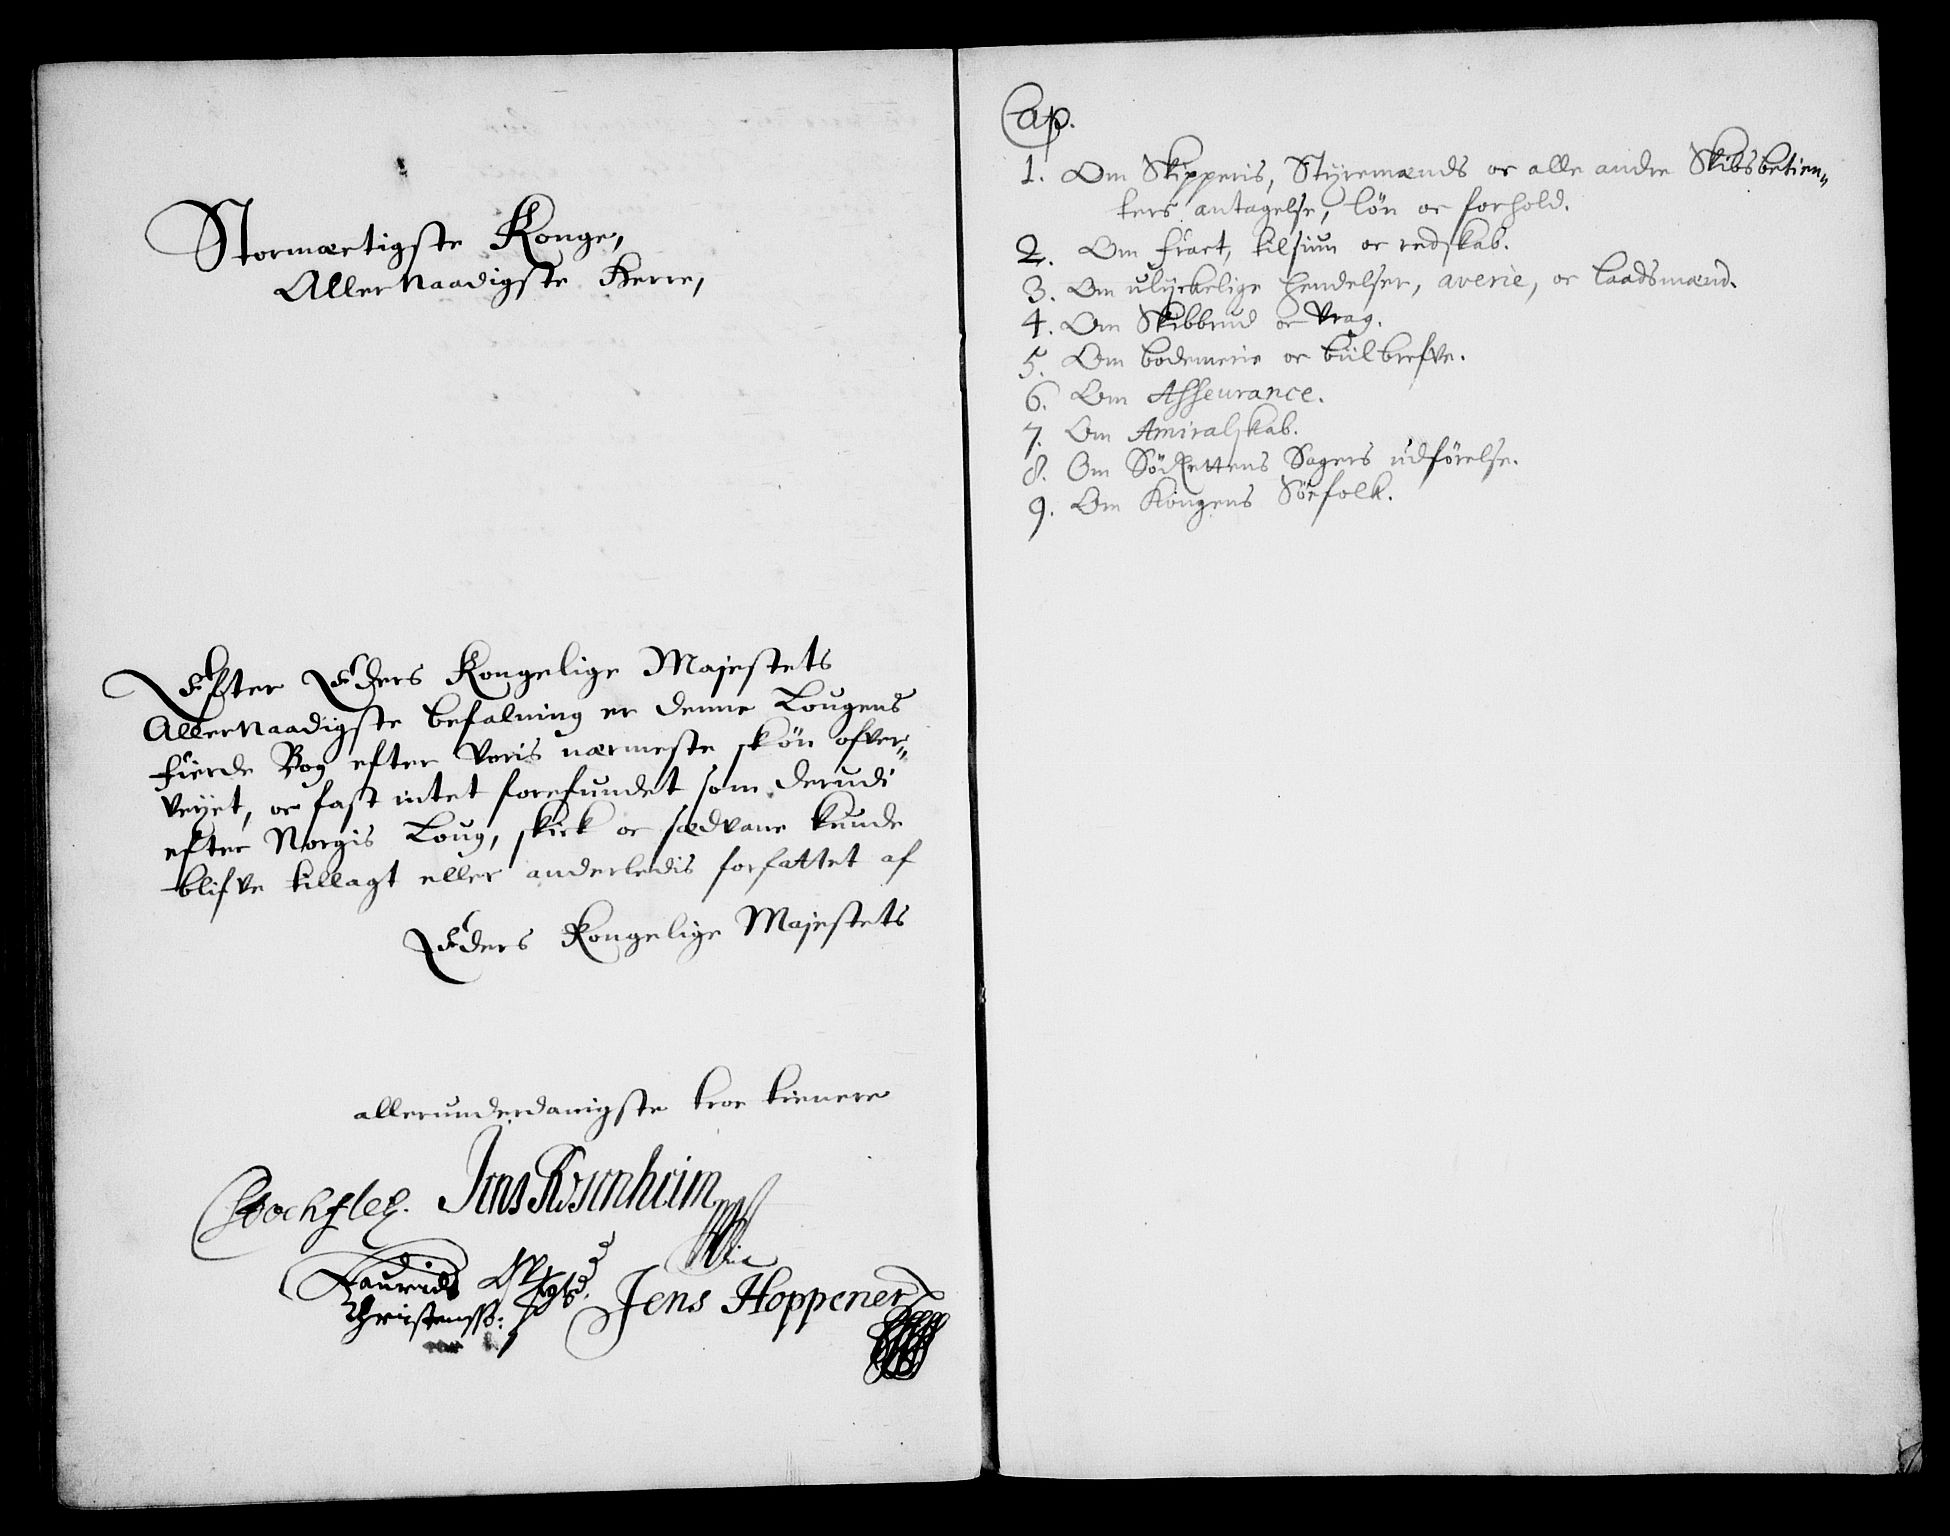 Stormectigste Konge,
Allernaadigste Herre,
Efter Eders Kongelige Majestets
Allernaadigste befalning er denne Lougens
fierde Bog efter voris nærmeste skön ofver=
veyet, oc fast intet forefundet som derudi
efter Norgis Loug, skick oc sædvane kunde
blifve tillagt eller anderledis forfattet af
Eders Kongelige Majestets
allerunderdanigste troe tienere
Jens Rosenheim
Laurids
Christenss:
Jens Hoppener
Cap.
1. Om Skipperis, Styremænds oc alle andre Skibsbetien=
ters antagelse, lön oc forhold.
2. Om fract, tilsiun oc redskab.
3. Om ulyckelige hendelser, averie, oc laadsmænd.
4. Om Skibbrud oc Vrag.
5. Om bodemerie oc biilbrefve.
6. Om Asseurance.
7. Om Amiralskab.
8. Om SöeRettens Sagers udförelse.
9. Om Kongens Söefolk.